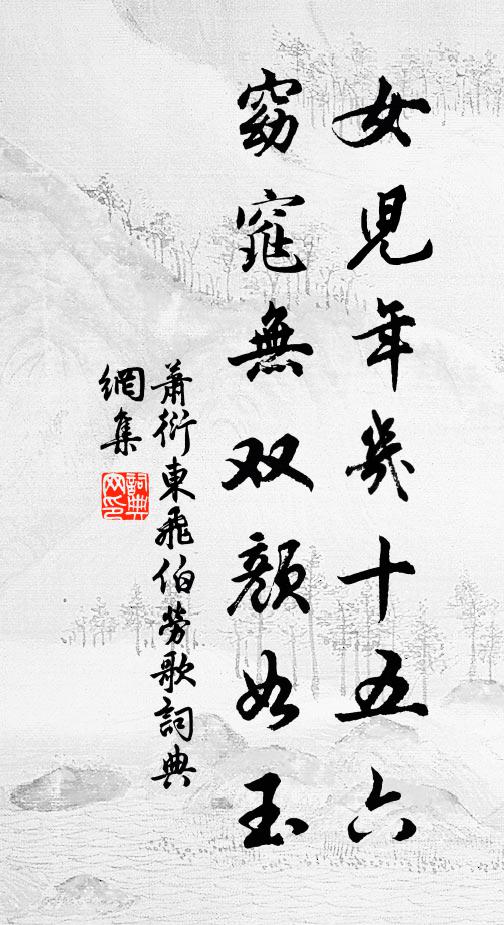 女児年幾十五六
窈窕無双顏如玉
蕭衍東飛伯勞歌詞典
網集
詞典
网印